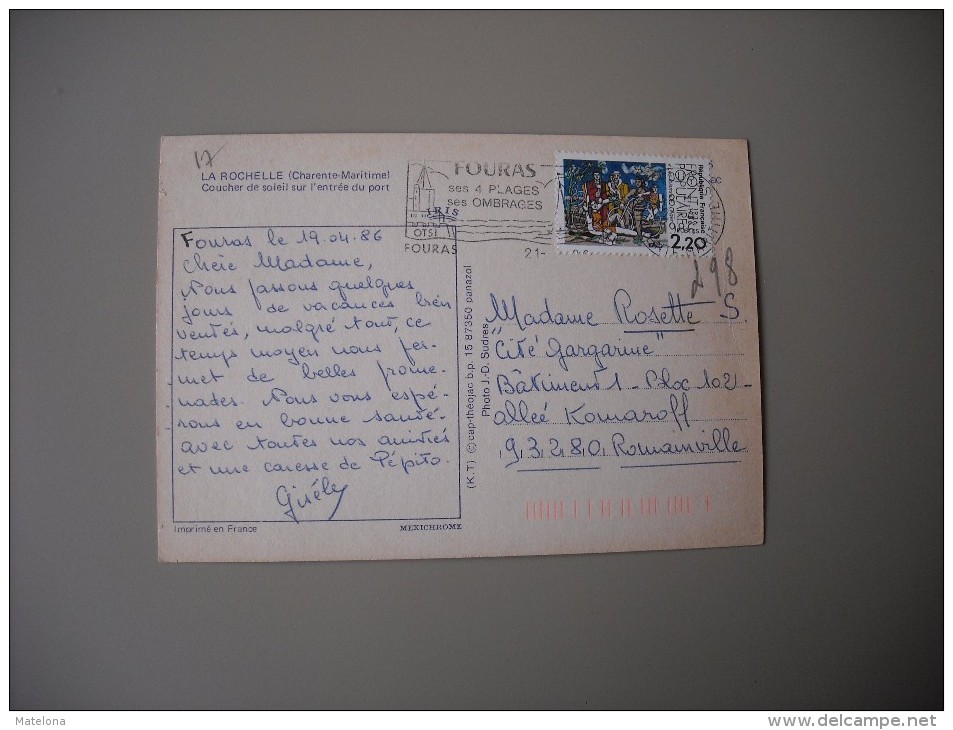 17
LA ROCHELLE (Charente-Maritime)
Coucher de soleil sur l'entrée du port
FOURAS
ses 4 PLAGES
ses OMBRAGES
OTSI
FOURAS
21-
République Française
FRONT
POPULAIRE
2,20
298
Fouras le 19.04.86
Chère Madame,
Nous passons quelques
jours de vacances bien
ventés, malgré tout, ce
temps moyen nous per-
met de belles prome-
nades. Nous vous espé-
rons en bonne santé.
avec toutes nos amitiés
et une caresse de Pépito.
Gisèle
Imprimé en France
MEXICHROME
(K.T) © cap-théojac b.p. 15 87350 panazol
Photo J.-D. Sudres
Madame Rosette S.
"Cité Gargarine"
Bâtiment 1 - Bloc 102-
allée Komaroff
93280 Romainville
Matelona
delcampe.net